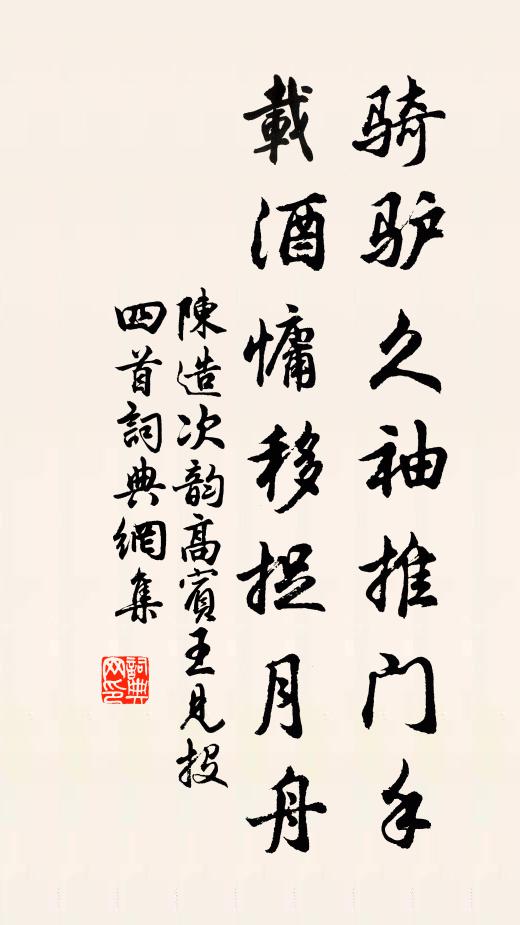 骑驴久袖推门手
載酒慵移捉月舟
陳造次韵高賓王見投
四首詞典網集
詞典网印